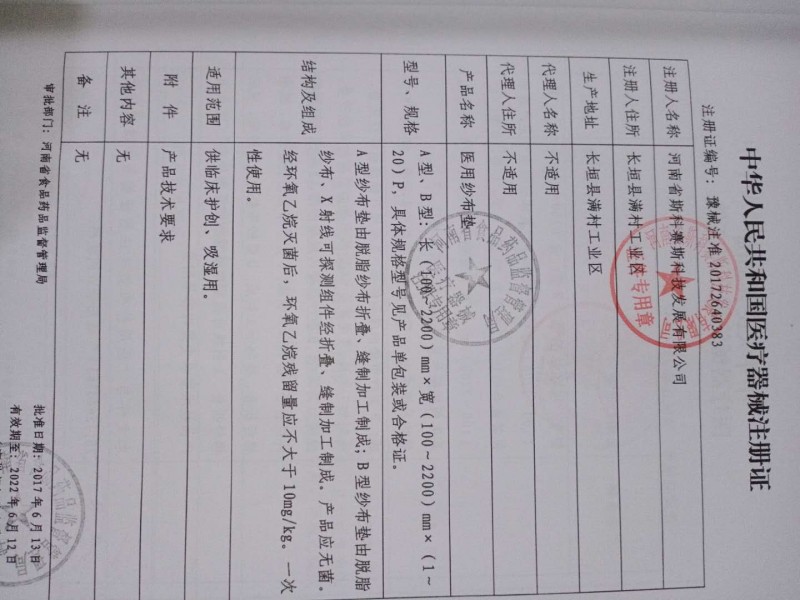 中华人民共和国医疗器械注册证
注册证编号：豫械注准 20172640383
注册人名称 河南省斯科赛斯科技发展有限公司
注册人住所 长垣县满村工业区
生产地址 长垣县满村工业区
代理人名称 不适用
代理人住所 不适用
产品名称 医用纱布垫
型号、规格 A型、B型：长（100～2200）mm×宽（100～2200）mm×（1～
20）P，具体规格型号见产品单包装或合格证。
结构及组成 A型纱布垫由脱脂纱布折叠、缝制加工制成；B型纱布垫由脱脂
纱布、X射线可探测组件经折叠、缝制加工制成。产品应无菌。
经环氧乙烷灭菌后，环氧乙烷残留量应不大于10mg/kg。一次
性使用。
适用范围 供临床护创、吸湿用。
附件 产品技术要求
其他内容 无
备注 无
审批部门：河南省食品药品监督管理局
批准日期：2017年6月13日
有效期至：2022年6月12日
专用章